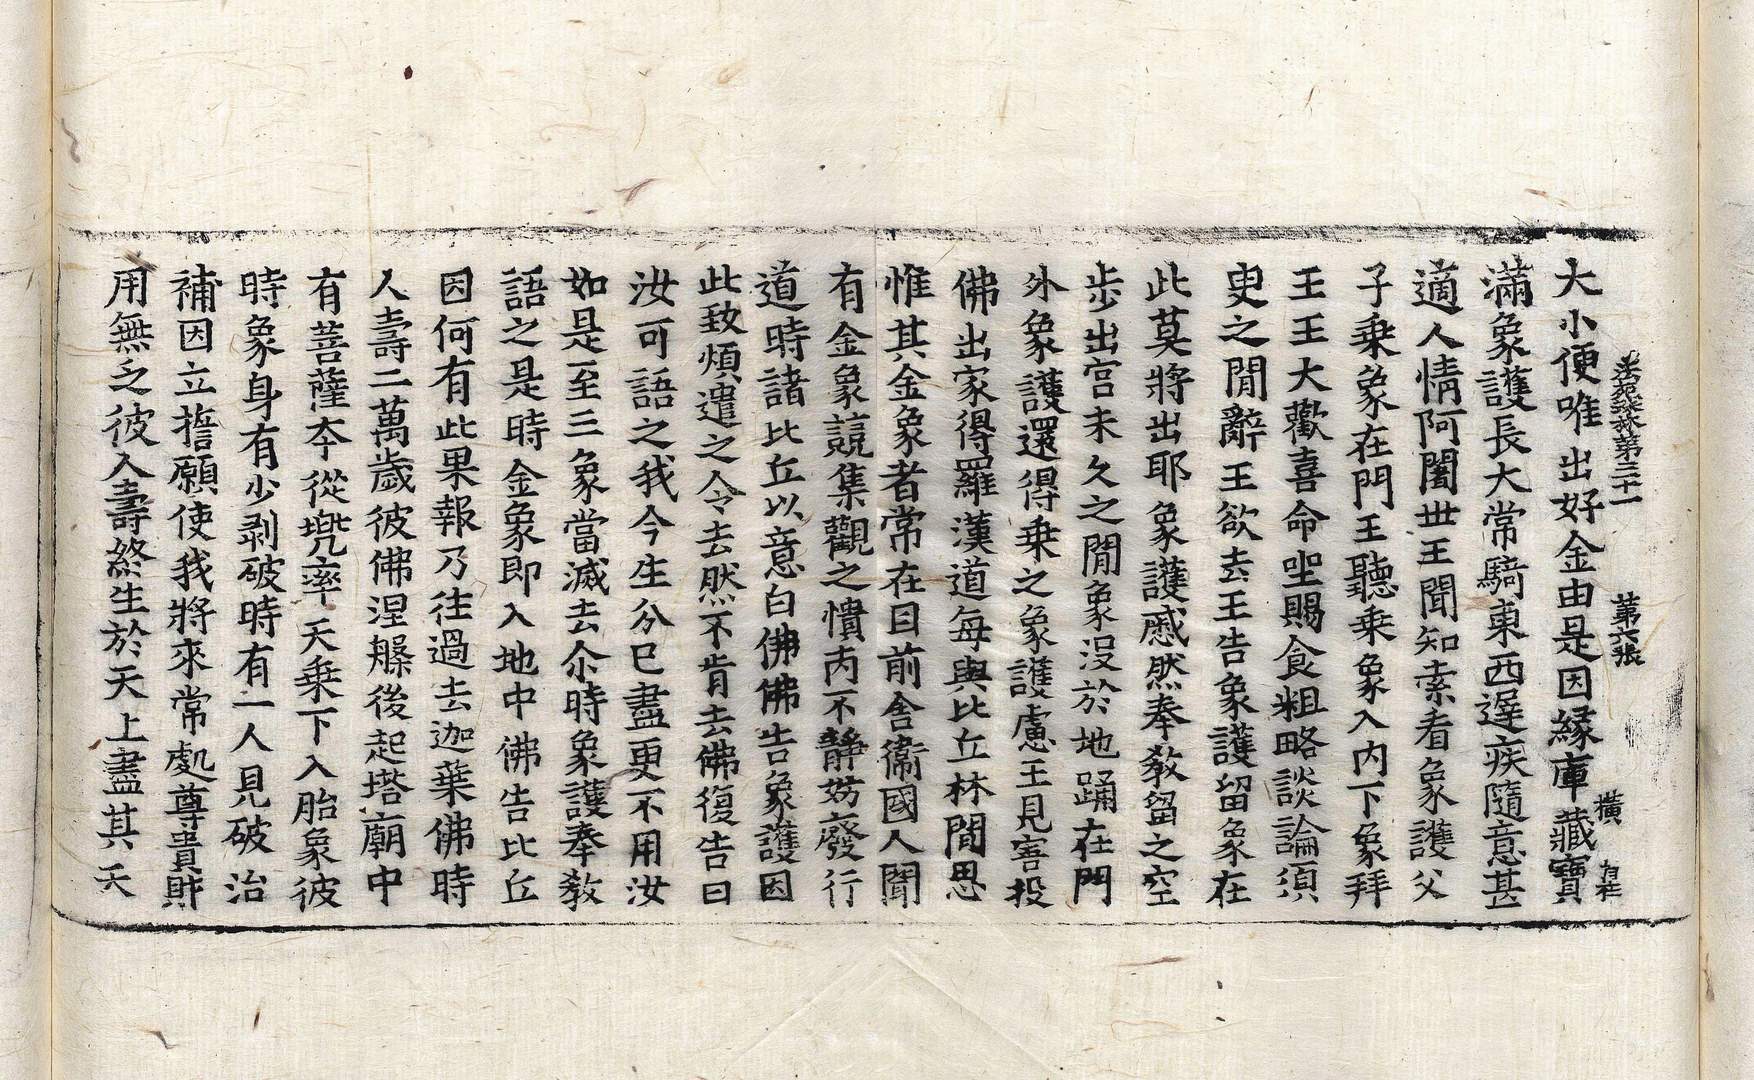 法苑珠林第三十一 第六張 橫
大小便唯出好金由是因緣庫藏寶
滿象護長大常騎東西遲疾隨意甚
適人情阿闍世王聞知索看象護父
子乘象在門王聽乘象入內下象拜
王王大歡喜命坐賜食粗略談論須
臾之間辭王欲去王告象護留象在
此莫將出耶象護慼然奉教留之空
步出宮未久之間象沒於地踊在門
外象護還得乘之象護慮王見害投
佛出家得羅漢道每與比丘林間思
惟其金象者常在目前舍衛國人聞
有金象競集觀之憒丙不靜妨廢行
道時諸比丘以意白佛佛告象護因
此致煩遣之令去然不肯去佛復告曰
汝可語之我今生分已盡更不用汝
如是至三象當滅去尒時象護奉教
語之是時金象即入地中佛告比丘
因何有此果報乃往過去迦葉佛時
人壽二萬歲彼佛涅槃後起塔廟中
有菩薩夲從兜率天乘下入胎象彼
時象身有少剥破時有一人見破治
補因立擔願使我將來常處尊貴財
用無乏彼人壽終生於天上盡其天